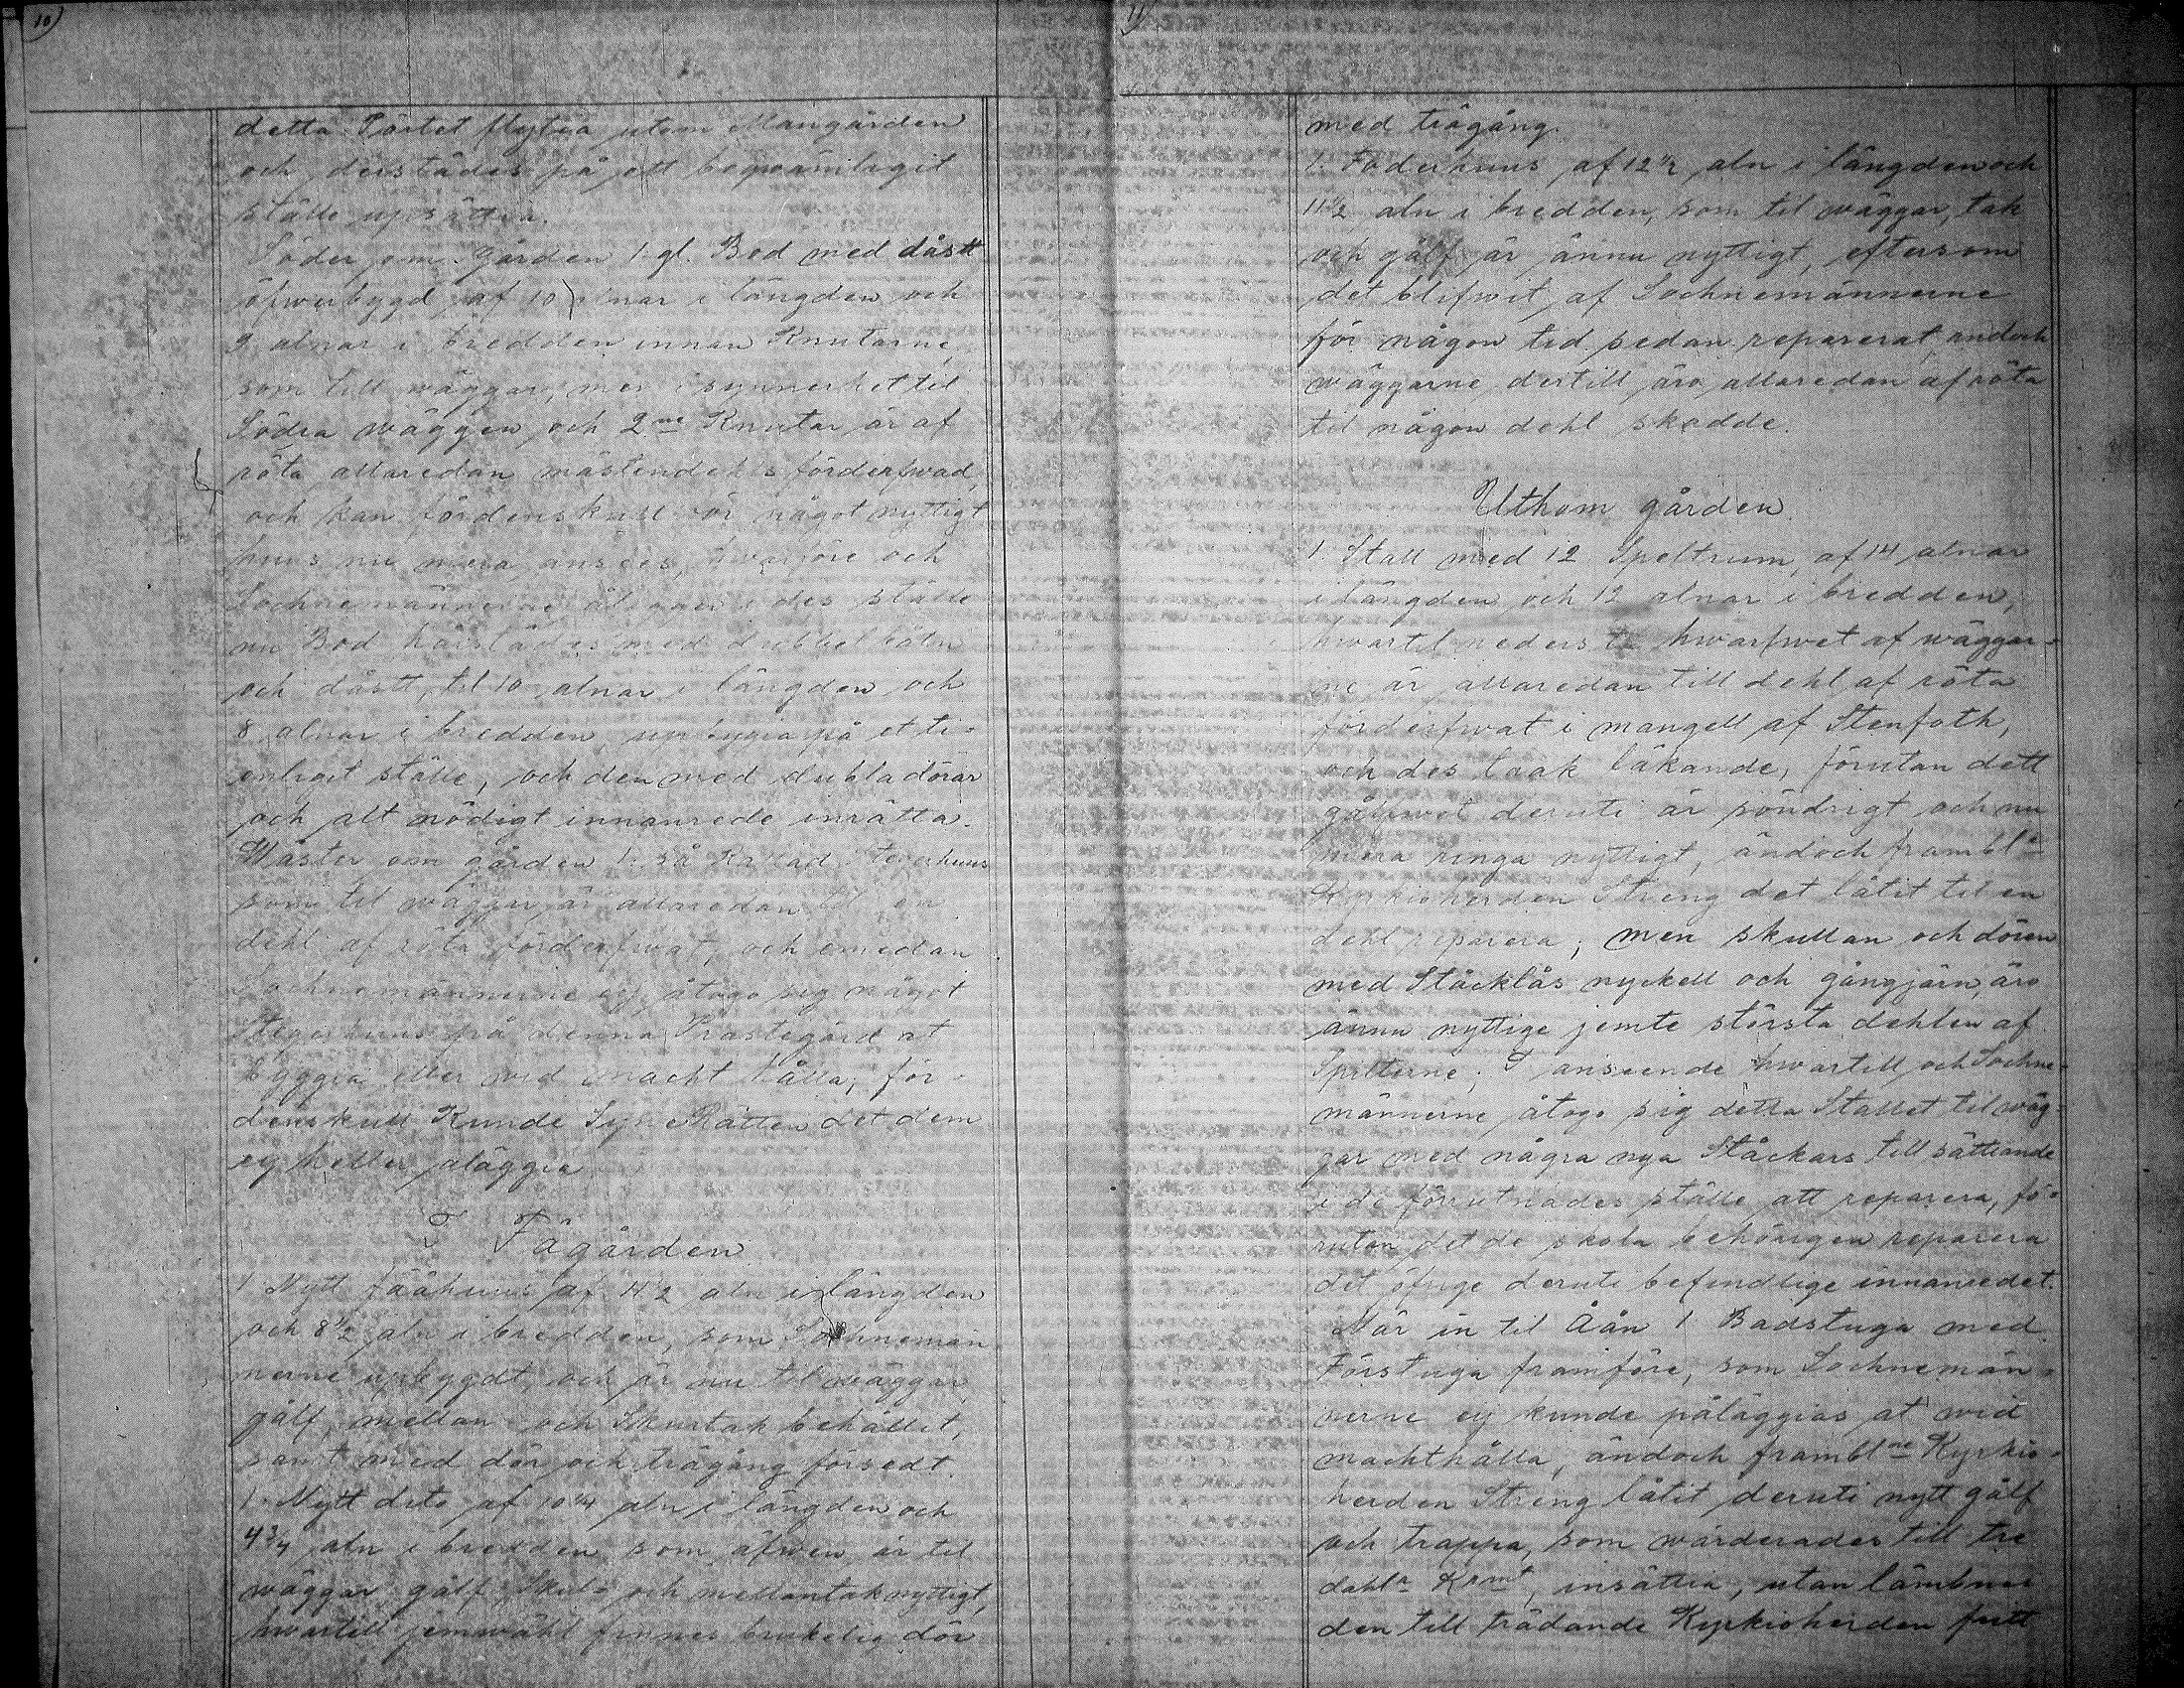 10)
detta Pörtet flyttia utom Mangården
och derstädes på ett beqvämligit
ställe upsättia.
Söder om gården 1. gl. Bod med dåstt
öfwerbygd af 10 alnar i längden och
9 alnar i bredden innan Knutarne,
som till wäggar, mer i synnerhet til
Södra wäggen och 2ne Knutar är af
röta allaredan mästendehls förderfwad,
och kan fördenskull för något nyttigt
huus nu mera anses, hwarföre och
Sochnemännerne åligger i des ställe
nu Bod härstädes med dubbel båtn
och dåstt, til 10 alnar i längden och
8 alnar i bredden, upbygia på et ti-
enligit ställe, och den med dubla dörar
och alt nödigt innanrede inrätta.
Wäster om gården 1. så kallad Stegerhuus
som til wäggar är allaredan til en
dehl af röta förderfwat, och emedan
Sochnemännerne ej åtogo sig något
Stegerhuus på denna Prästegård at
byggia eller wid macht hålla, för-
denskull Kunde Syne Rätten det dem
ej heller påläggia
I Fägården
1. Nytt fäähuus af 11 1/2 aln i längden
och 8 1/2 aln i bredden, som Sochnemän
nerne upbygdt, och är nu til wäggar
gålf, mellan och Skurtak behållit,
samt med dör och trägång försedt.
1. Nytt dito af 10 1/4 aln i längden och
4 3/4 aln i bredden som äfwen är til
wäggar gålf, Skul- och mellantak nyttigt,
hwartill jemwähl finnes brukelig dör
11)
med trägång.
1. Foderhuus af 12 1/2 aln i längden och
11 1/2 aln i bredden, som til wäggar, tak
och gålf är ännu nyttigt, eftersom
det blifwit af Sochnemännerne
för någon tid sedan reparerat, andoch
wäggarne dertill äro allaredan af röta
til någon dehl skadde.
Uthom gården
1. Stall med 12 Speltrum, af 14 alnar
i längden och 12 alnar i bredden,
hwartil nedersta hwarfwet af wäggar-
ne är allaredan till dehl af röta
förderfwat i mangell af Stenfoth,
och des taak läkande, förutan dett
gålfwet deruti är söndrigt och nu
mera ringa nyttigt, ändoch frambl:ne
Kyrkioherden Streng det låtit til en
dehl reparera; men skullan och dören
med Ståcklås nyckell och gångjärn, äro
ännu nyttige jemte största dehlen af
Spilterne; I anseende hwartill och Sochne-
männerne åtogo sig detta Stallet til wäg-
gar med några nya Ståckars till sättiande
i de förrutnades ställe att reparera, för-
rutan det de skola behörigen reparera
det öfrige deruti befindtlige innanredet.
När in til Åån 1 Badstuga med
Förstuga framföre, som Sochnemän-
nerne ej kunde påläggias at wid
machthålla, ändoch frambl:ne Kyrkio-
herden Streng låtit deruti nytt gålf
och trappa, som wärderades till tre
dahlr Krmt, insättia, utan lämbnas
den till trädande Kyrkioherden fritt